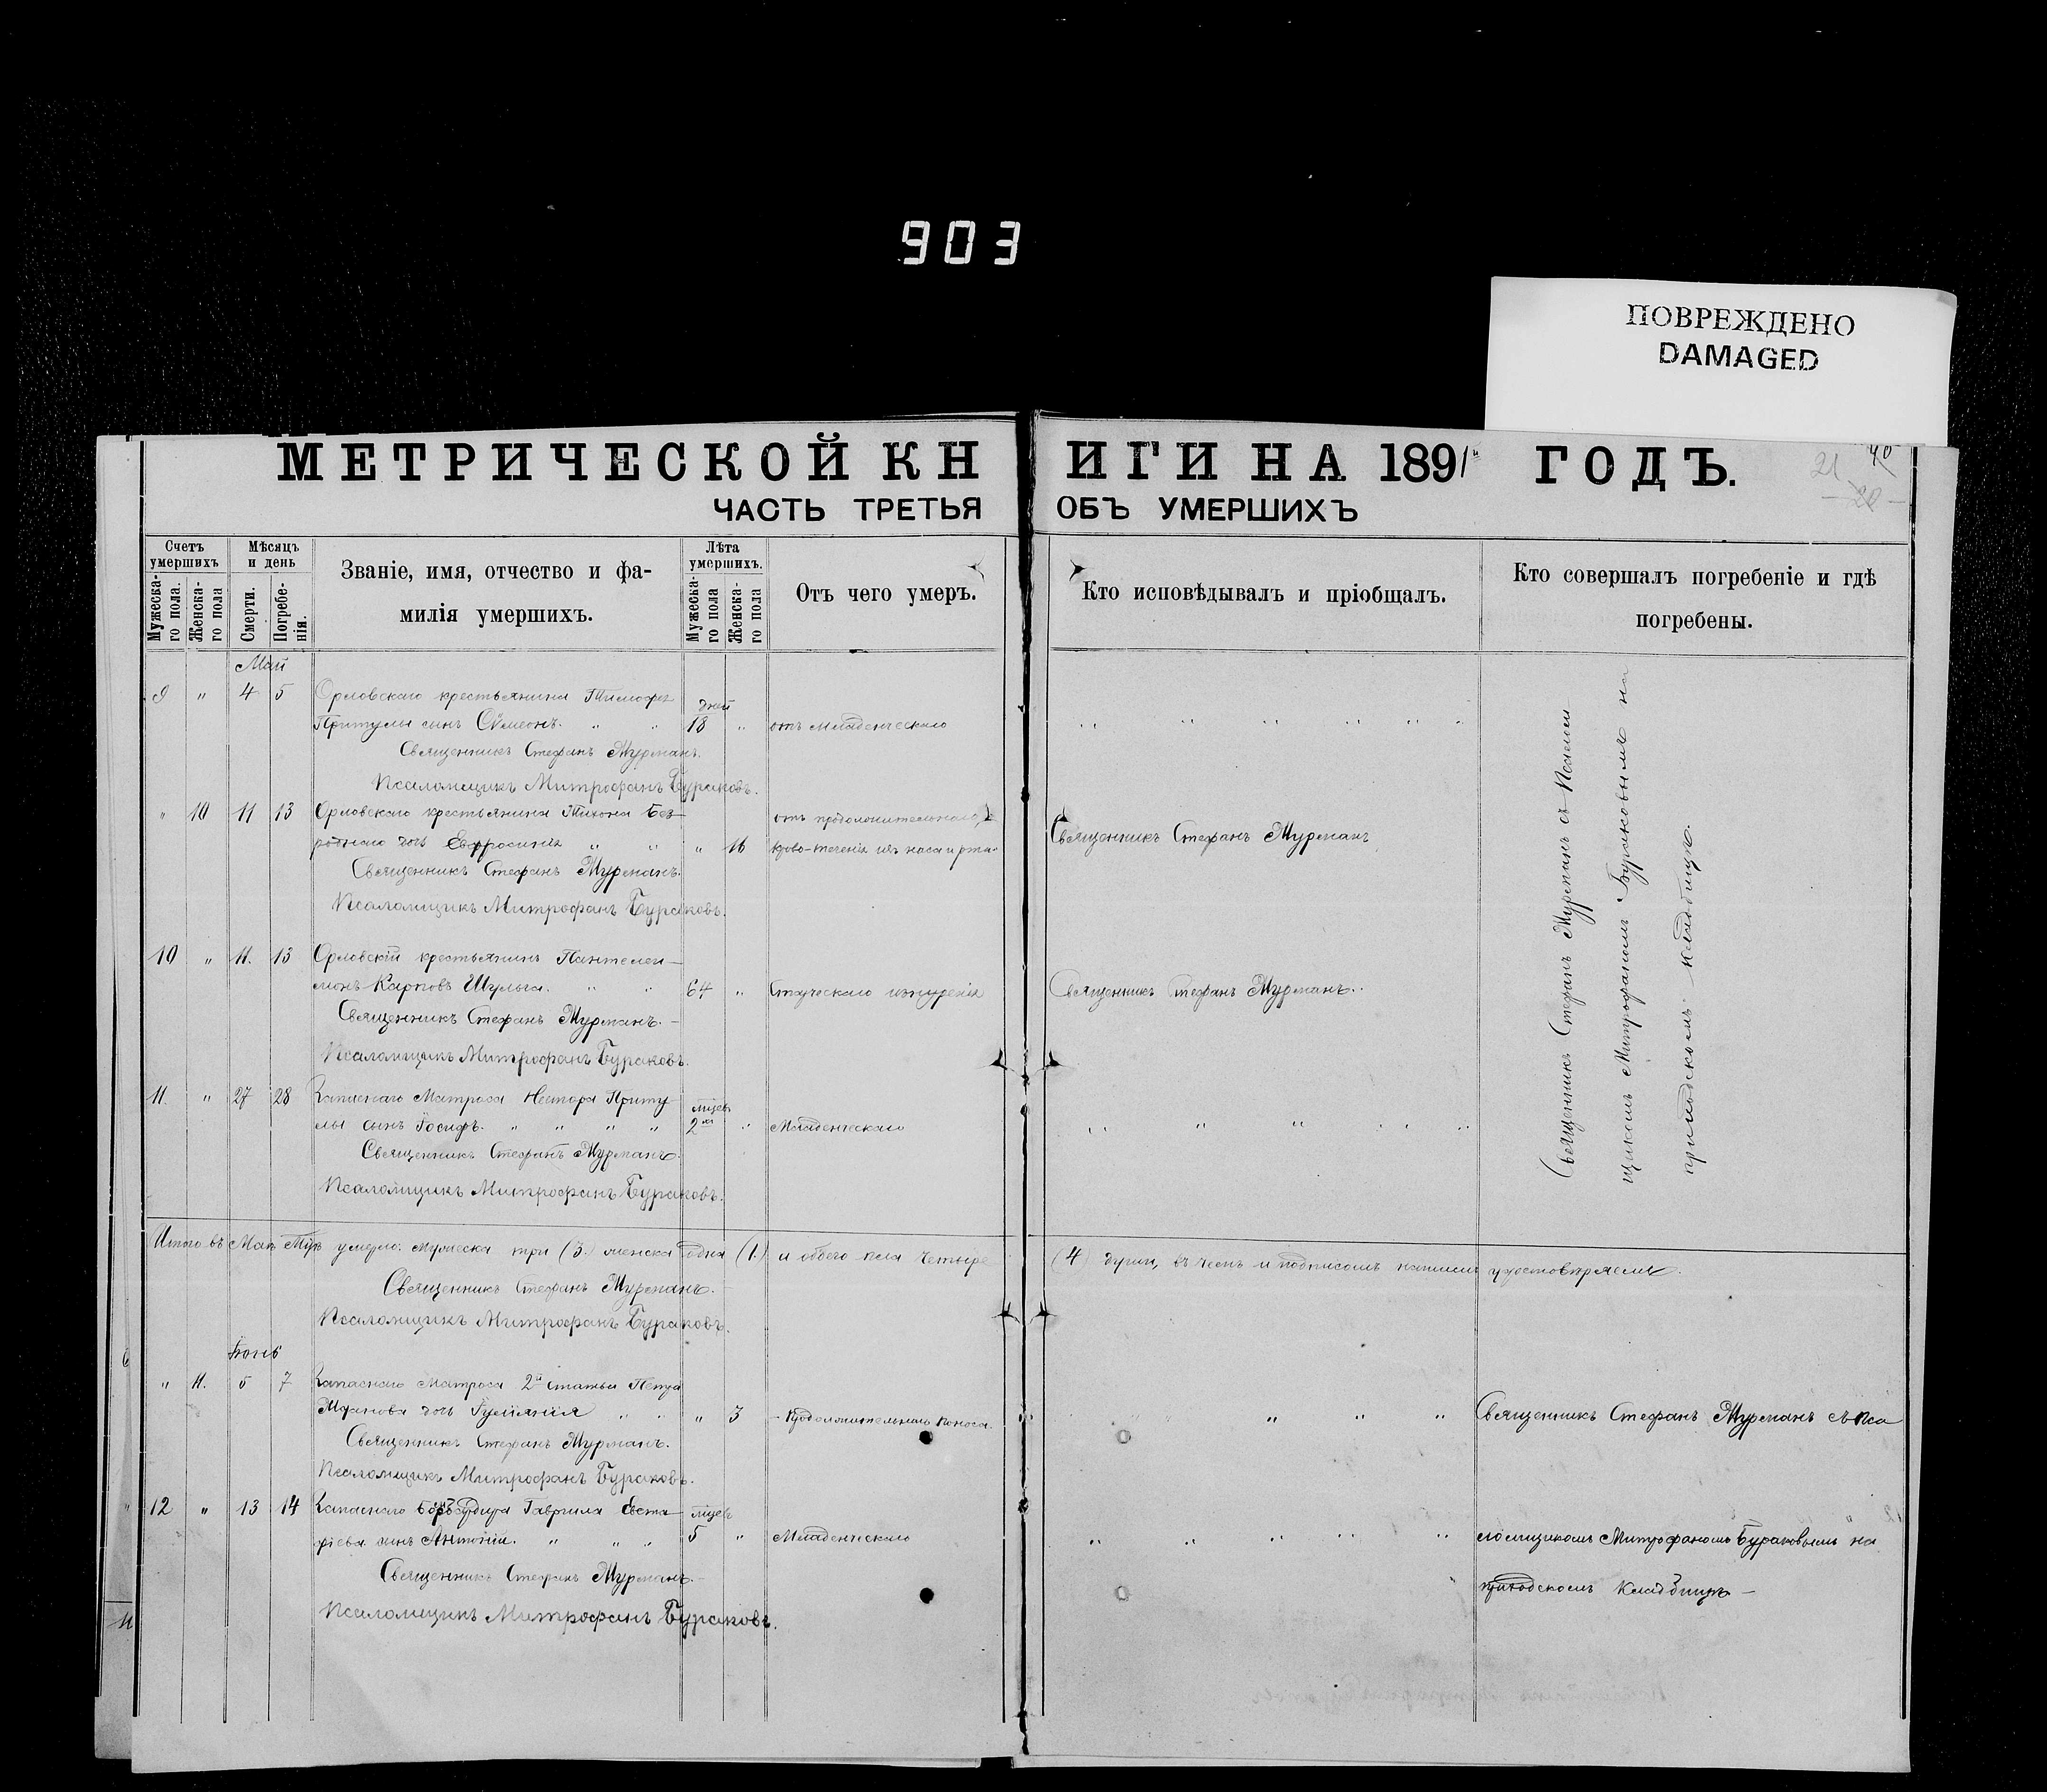 903
ПОВРЕЖДЕНО
DAMAGED
МЕТРИЧЕСКОЙ КНИГИ НА 1891й ГОДЪ.
21
ЧАСТЬ ТРЕТЬЯ ОБЪ УМЕРШИХЪ
Счетъ умершихъ
Мужеска-го пола.
Женска-го пола
Мѣсяцъ и день
Смерти.
Погребе-нія.
Званіе, имя, отчество и фа-
милія умершихъ.
Лѣта умершихъ.
Мужеска-го пола
Женска-го пола
Отъ чего умеръ.
Кто исповѣдывалъ и пріобщалъ.
Кто совершалъ погребеніе и гдѣ
погребены.
Май
9 " 4 5 Орловскаго крестьянина Тимофея дней
Притулы сынъ Сѵмеонъ. " " 18 " отъ младенческаго " " " " " "
Священникъ Стефанъ Мурманъ.
Псаломщикъ Митрофанъ Бураковъ.
" 10 11 13 Орловскаго крестьянина Тихона Без- отъ продолжительнаго
роднаго дочь Евфросинія " " " 16 крово-теченія изъ носа и рта. Священникъ Стефанъ Мурманъ
Священникъ Стефанъ Мурманъ.
Псаломщикъ Митрофанъ Бураковъ.
10 " 11. 13 Орловскій крестьянинъ Пантелеи-
монъ Карповъ Шульга. " " 64 " Старческаго изнуренія Священникъ Стефанъ Мурманъ.
Священникъ Стефанъ Мурманъ.
Псаломщикъ Митрофанъ Бураковъ.
11. " 27 28 Запаснаго Матроса Нестора Приту- мѣсяц.
лы сынъ Іосифъ. " " " " 2хъ " Младенческаго " " " " " "
Священникъ Стефанъ Мурманъ.
Псаломщикъ Митрофанъ Бураковъ.
Священникъ Стефанъ Мурманъ съ Псалом
щикомъ Митрофаномъ Бураковымъ на
приходскомъ кладбищѣ.
Итого въ Маѣ умерло: мужеска три (3.) женска одна (1.) и обоего пола четыре (4) души, въ чемъ и подписомъ нашимъ удостовѣряемъ.
Священникъ Стефанъ Мурманъ.
Псаломщикъ Митрофанъ Бураковъ.
Іюнь
" 11. 5 7 Запаснаго Матроса 2й статьи Петра
дочь " " " 3 Продолжительнаго поноса. " " " " Священникъ Стефанъ Мурманъ съ Пса
Священникъ Стефанъ Мурманъ.
Псаломщикъ Митрофанъ Бураковъ.
12 " 13 14 Запаснаго Гавриила Евста- мѣсяц.
фіева сынъ Антоній. " " " 5 " Младенческаго " " " " " ломщикомъ Митрофаномъ Бураковымъ на
Священникъ Стефанъ Мурманъ.
приходскомъ кладбищѣ
Псаломщикъ Митрофанъ Бураковъ.